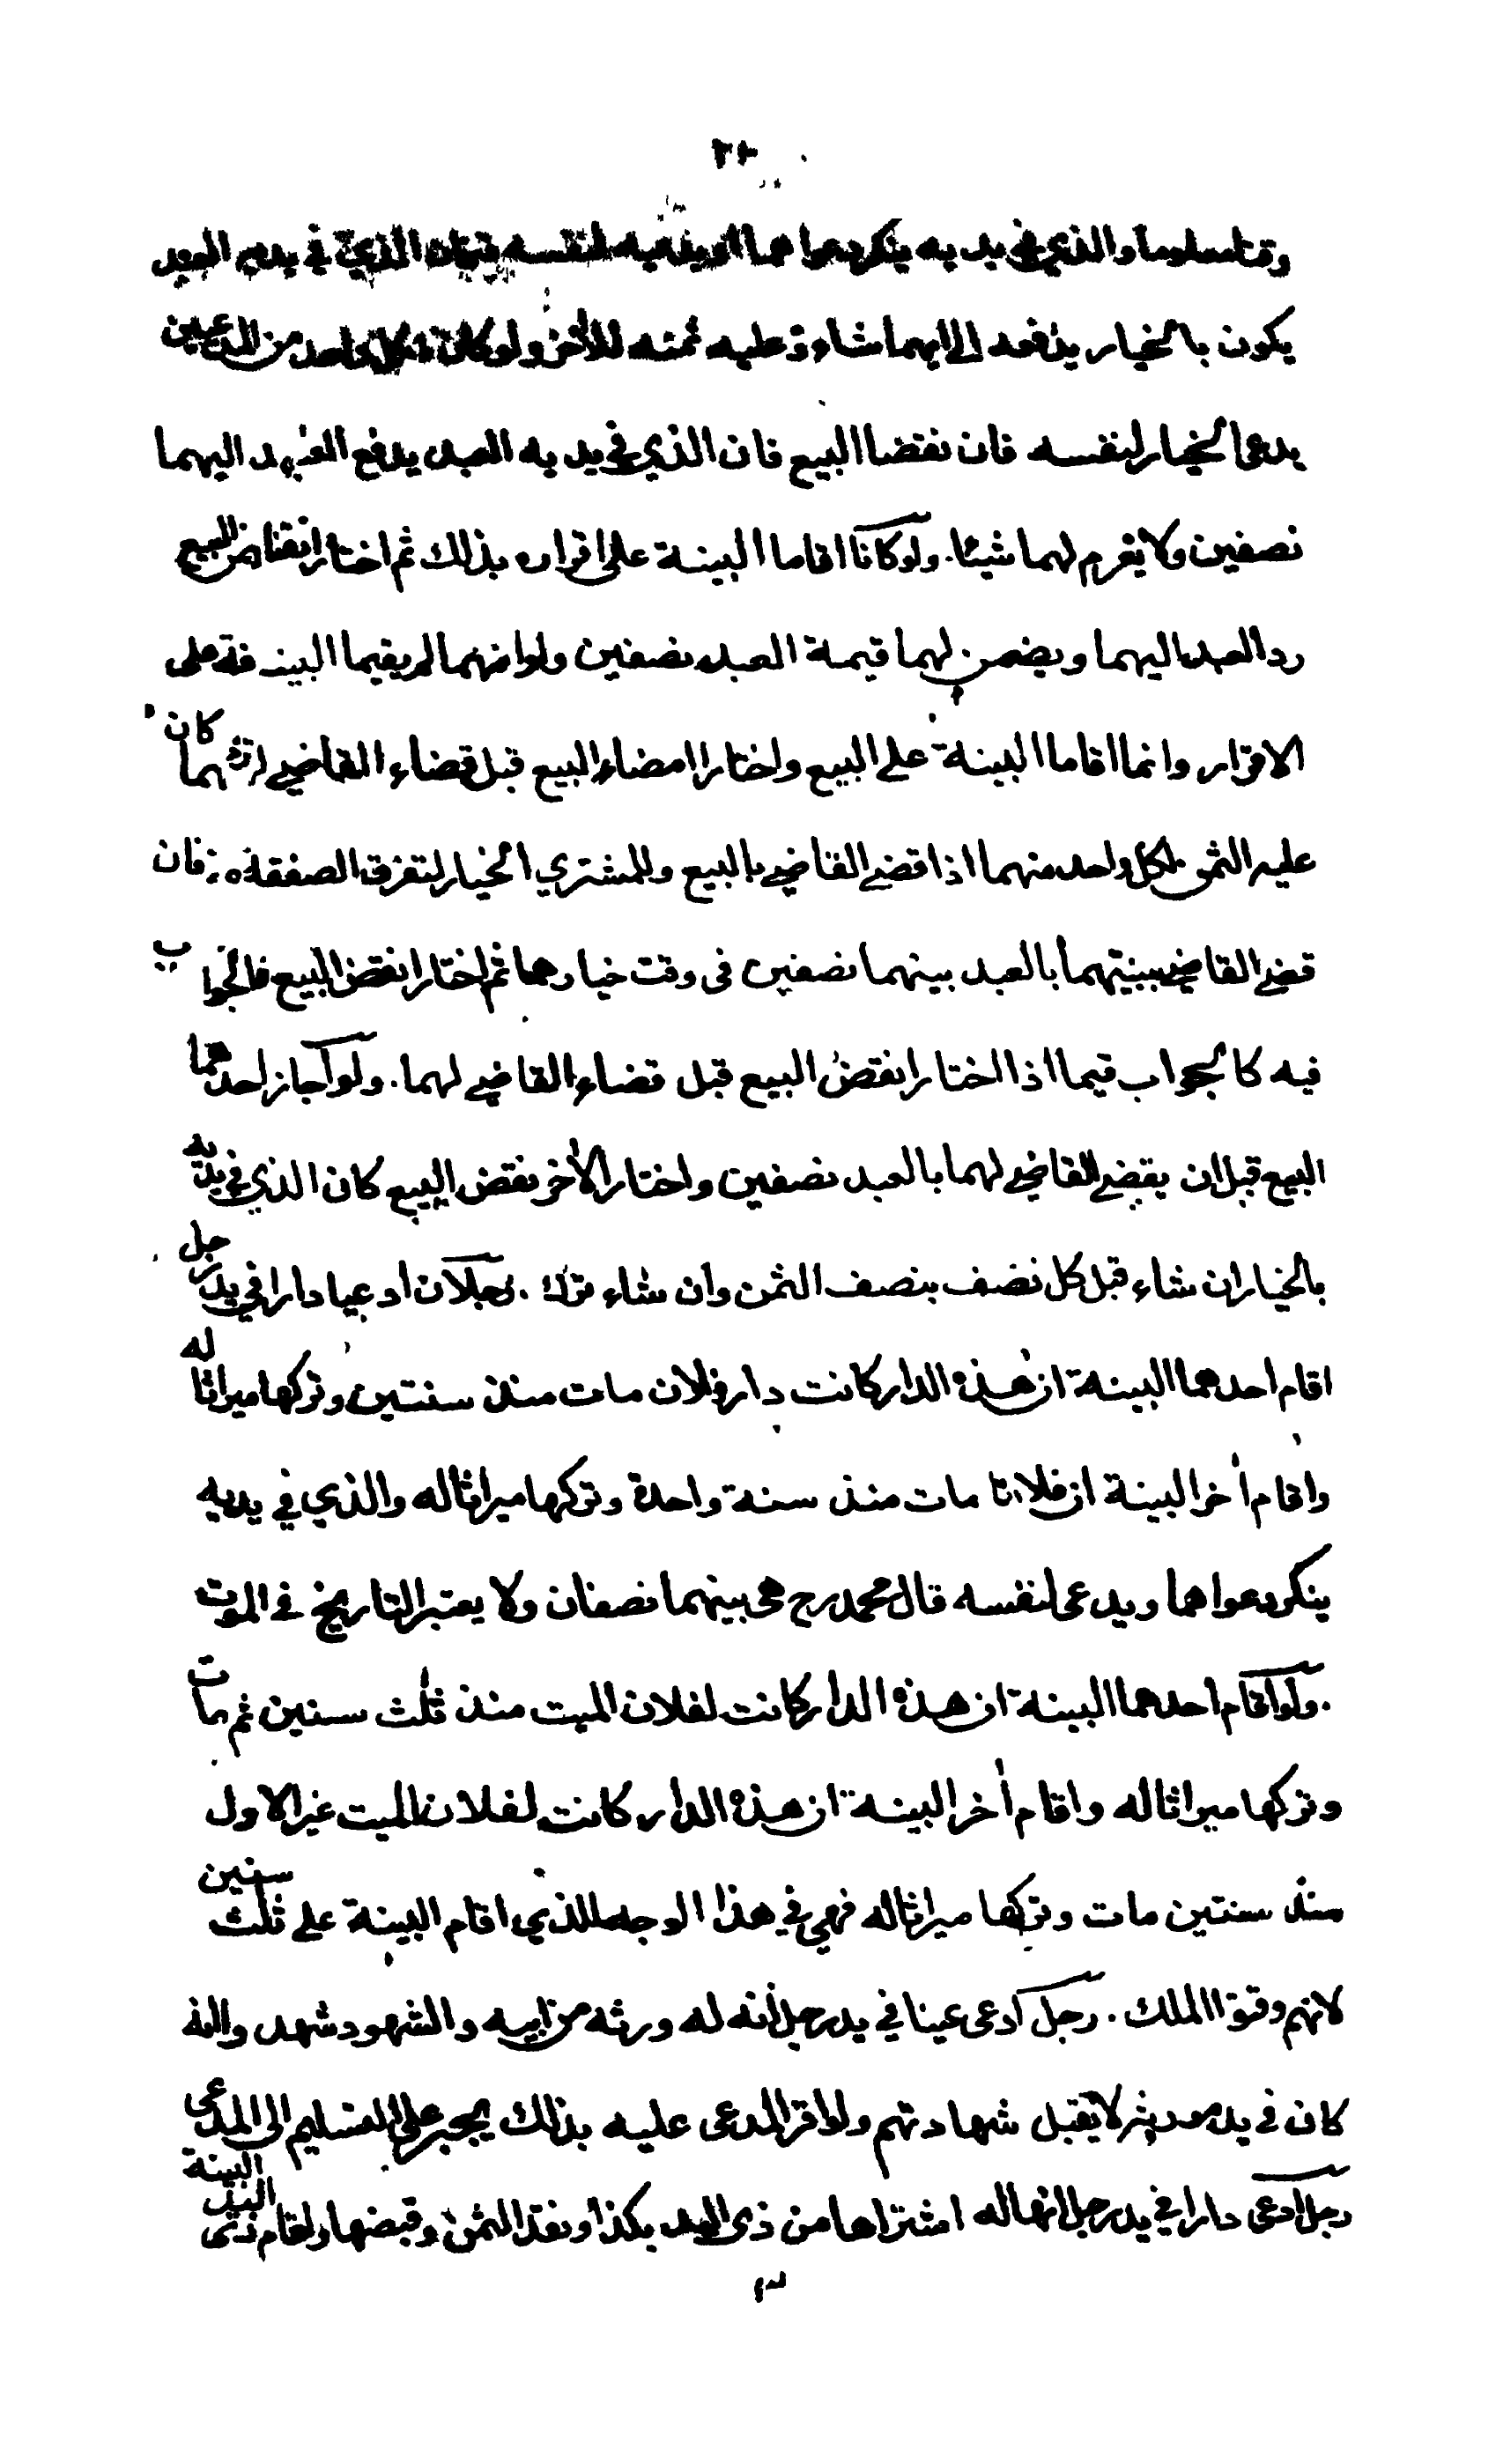 ٢٠
وقتا معلوما والذي في يديه ينكر دعواهما ويدعيه لنفسه فان الذي في يديه العبد
يكون بالخيار يدفعه الى ايهما شاء وعليه ثمنه للأخر ولو كان كل واحد من المدعيين
يدعي الخيار لنفسه فان نقضا البيع فان الذي في يديه العبد يدفع العبد اليهما
نصفين ولا يغرم لهما شيئا. ولو كانا اقاما البينة على اقراره بذلك ثم اختارا نقض البيع
رد العبد اليهما ويضمن لهما قيمة العبد نصفين ولو انهما لم يقيما البينة على
الاقرار وانما اقاما البينة على البيع واختارا امضاء البيع قبل قضاء القاضي كان
عليه الثمن لكل واحد منهما اذا قضى القاضي بالبيع وللمشتري الخيار لتفرق الصفقة فان
قضى القاضي ببينتهما بالعبد بينهما نصفين فى وقت خيارهما ثم اختارا نقض البيع فالجواب
فيه كالجواب فيما اذا اختارا نقض البيع قبل قضاء القاضي لهما. ولو اجاز احدهما
البيع قبل ان يقضي القاضي لهما بالعبد نصفين واختار الأخر نقض البيع كان الذي في يديه
بالخيار ان شاء قبل كل نصف بنصف الثمن وان شاء ترك. رجلان ادعيا دارا في يد رجل
اقام احدهما البينة ان هذه الدار كانت دار فلان مات منذ سنتين وتركها ميراثا له
واقام أخر البينة ان فلانا مات منذ سنة واحدة وتركها ميراثا له والذي في يديه
ينكر دعواهما ويدعى لنفسه قال محمد رح هى بينهما نصفان ولا يعتبر التاريخ فى الموت
. ولو اقام احدهما البينة ان هذه الدار كانت لفلان الميت منذ ثلث سنين ثم مات
وتركها ميراثا له واقام أخر البينة ان هذه الدار كانت لفلان الميت غير الاول
منذ سنتين مات وتركها ميراثا له فهي في هذا الوجه للذي اقام البينة على ثلث سنين
لانهم وقتوا الملك. رجل ادعى عينا في يد رجل أنه له ورثه من ابيه والشهود شهدوا انه
كان فى يد مورثه لا يقبل شهادتهم ولو اقر المدعى عليه بذلك يجبر على التسليم الى المدعى
رجل ادعى دارا في يد رجل انها له اشتراها من ذى اليد بكذا ونقد الثمن وقبضها واقام البينة ذى اليد
٣